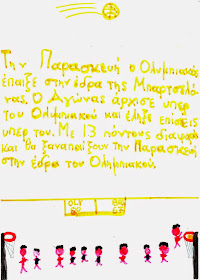 Την Παρασκευή ο Ολυμπιακός
έπαιξε στην έδρα της Μπαρτσελό-
νας. Ο Αγώνας άρχισε υπερ
του Ολυμπιακού και έληξε επίσεις
υπερ του. Με 13 πόντους διαφορά
και θα ξαναπαίξουν την Παρασκευή
στην έδρα του Ολυμπιακού.
OLY